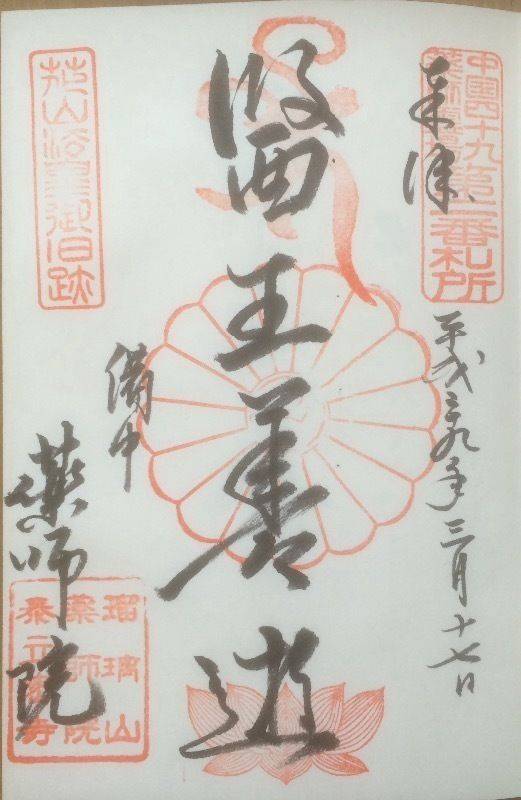 中国四十九
薬師霊場
第二番札所
奉拝
平成二九年三月十七日
醫王善逝
備中
薬師院
花山法皇御旧跡
瑠璃山
薬師院